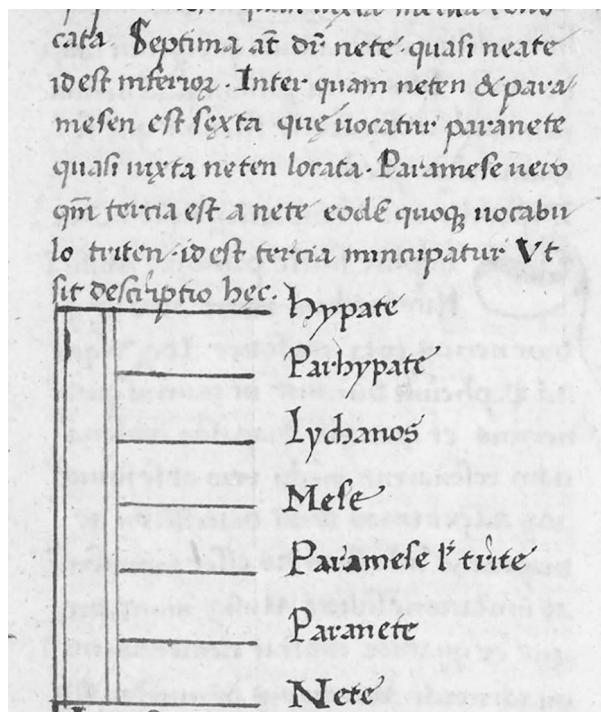 cata. Septima at̄ dr̄ nete. quasi neate
id est inferior. Inter quam neten & para
mesen est sęxta quę uocatur paranete
quasi iuxta neten locata. Paramese uero
qm̄ tercia est a nete eodē quoq; uocabu
lo triten. id est tercia nuncupatur Vt
sit descriptio hęc.
Hypate
Parhypate
Lychanos
Mese
Paramese ł trite
Paranete
Nete